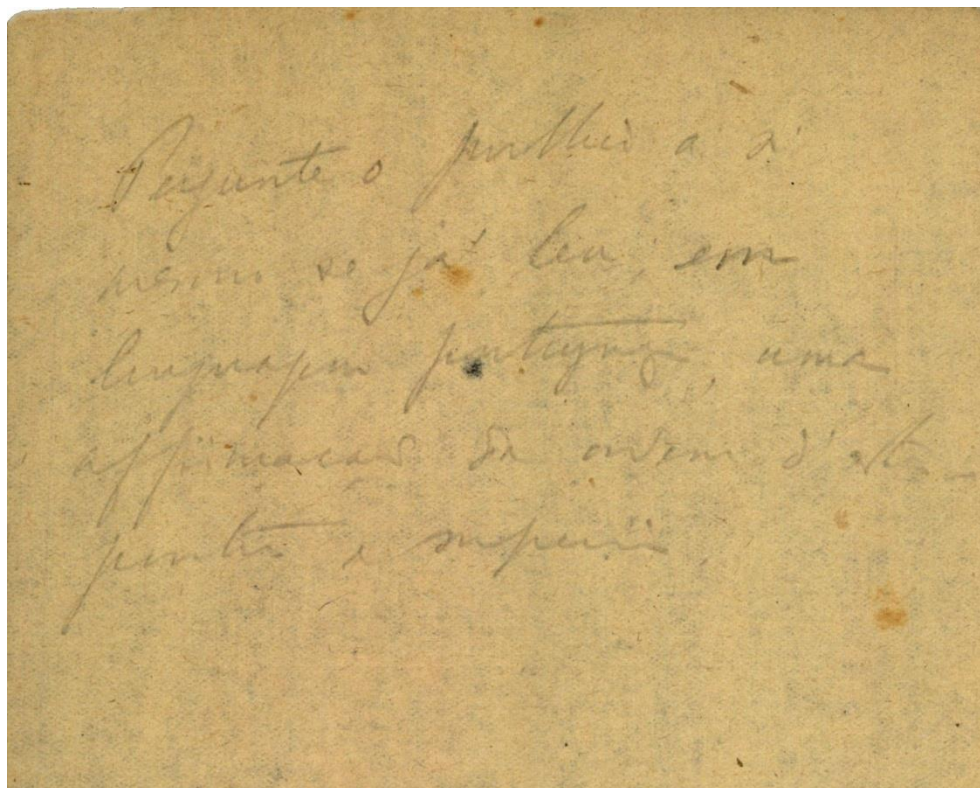 Pergunte o publico a si
mesmo se já leu, em
linguagem portugueza, uma
affirmacao da ordem d'esta